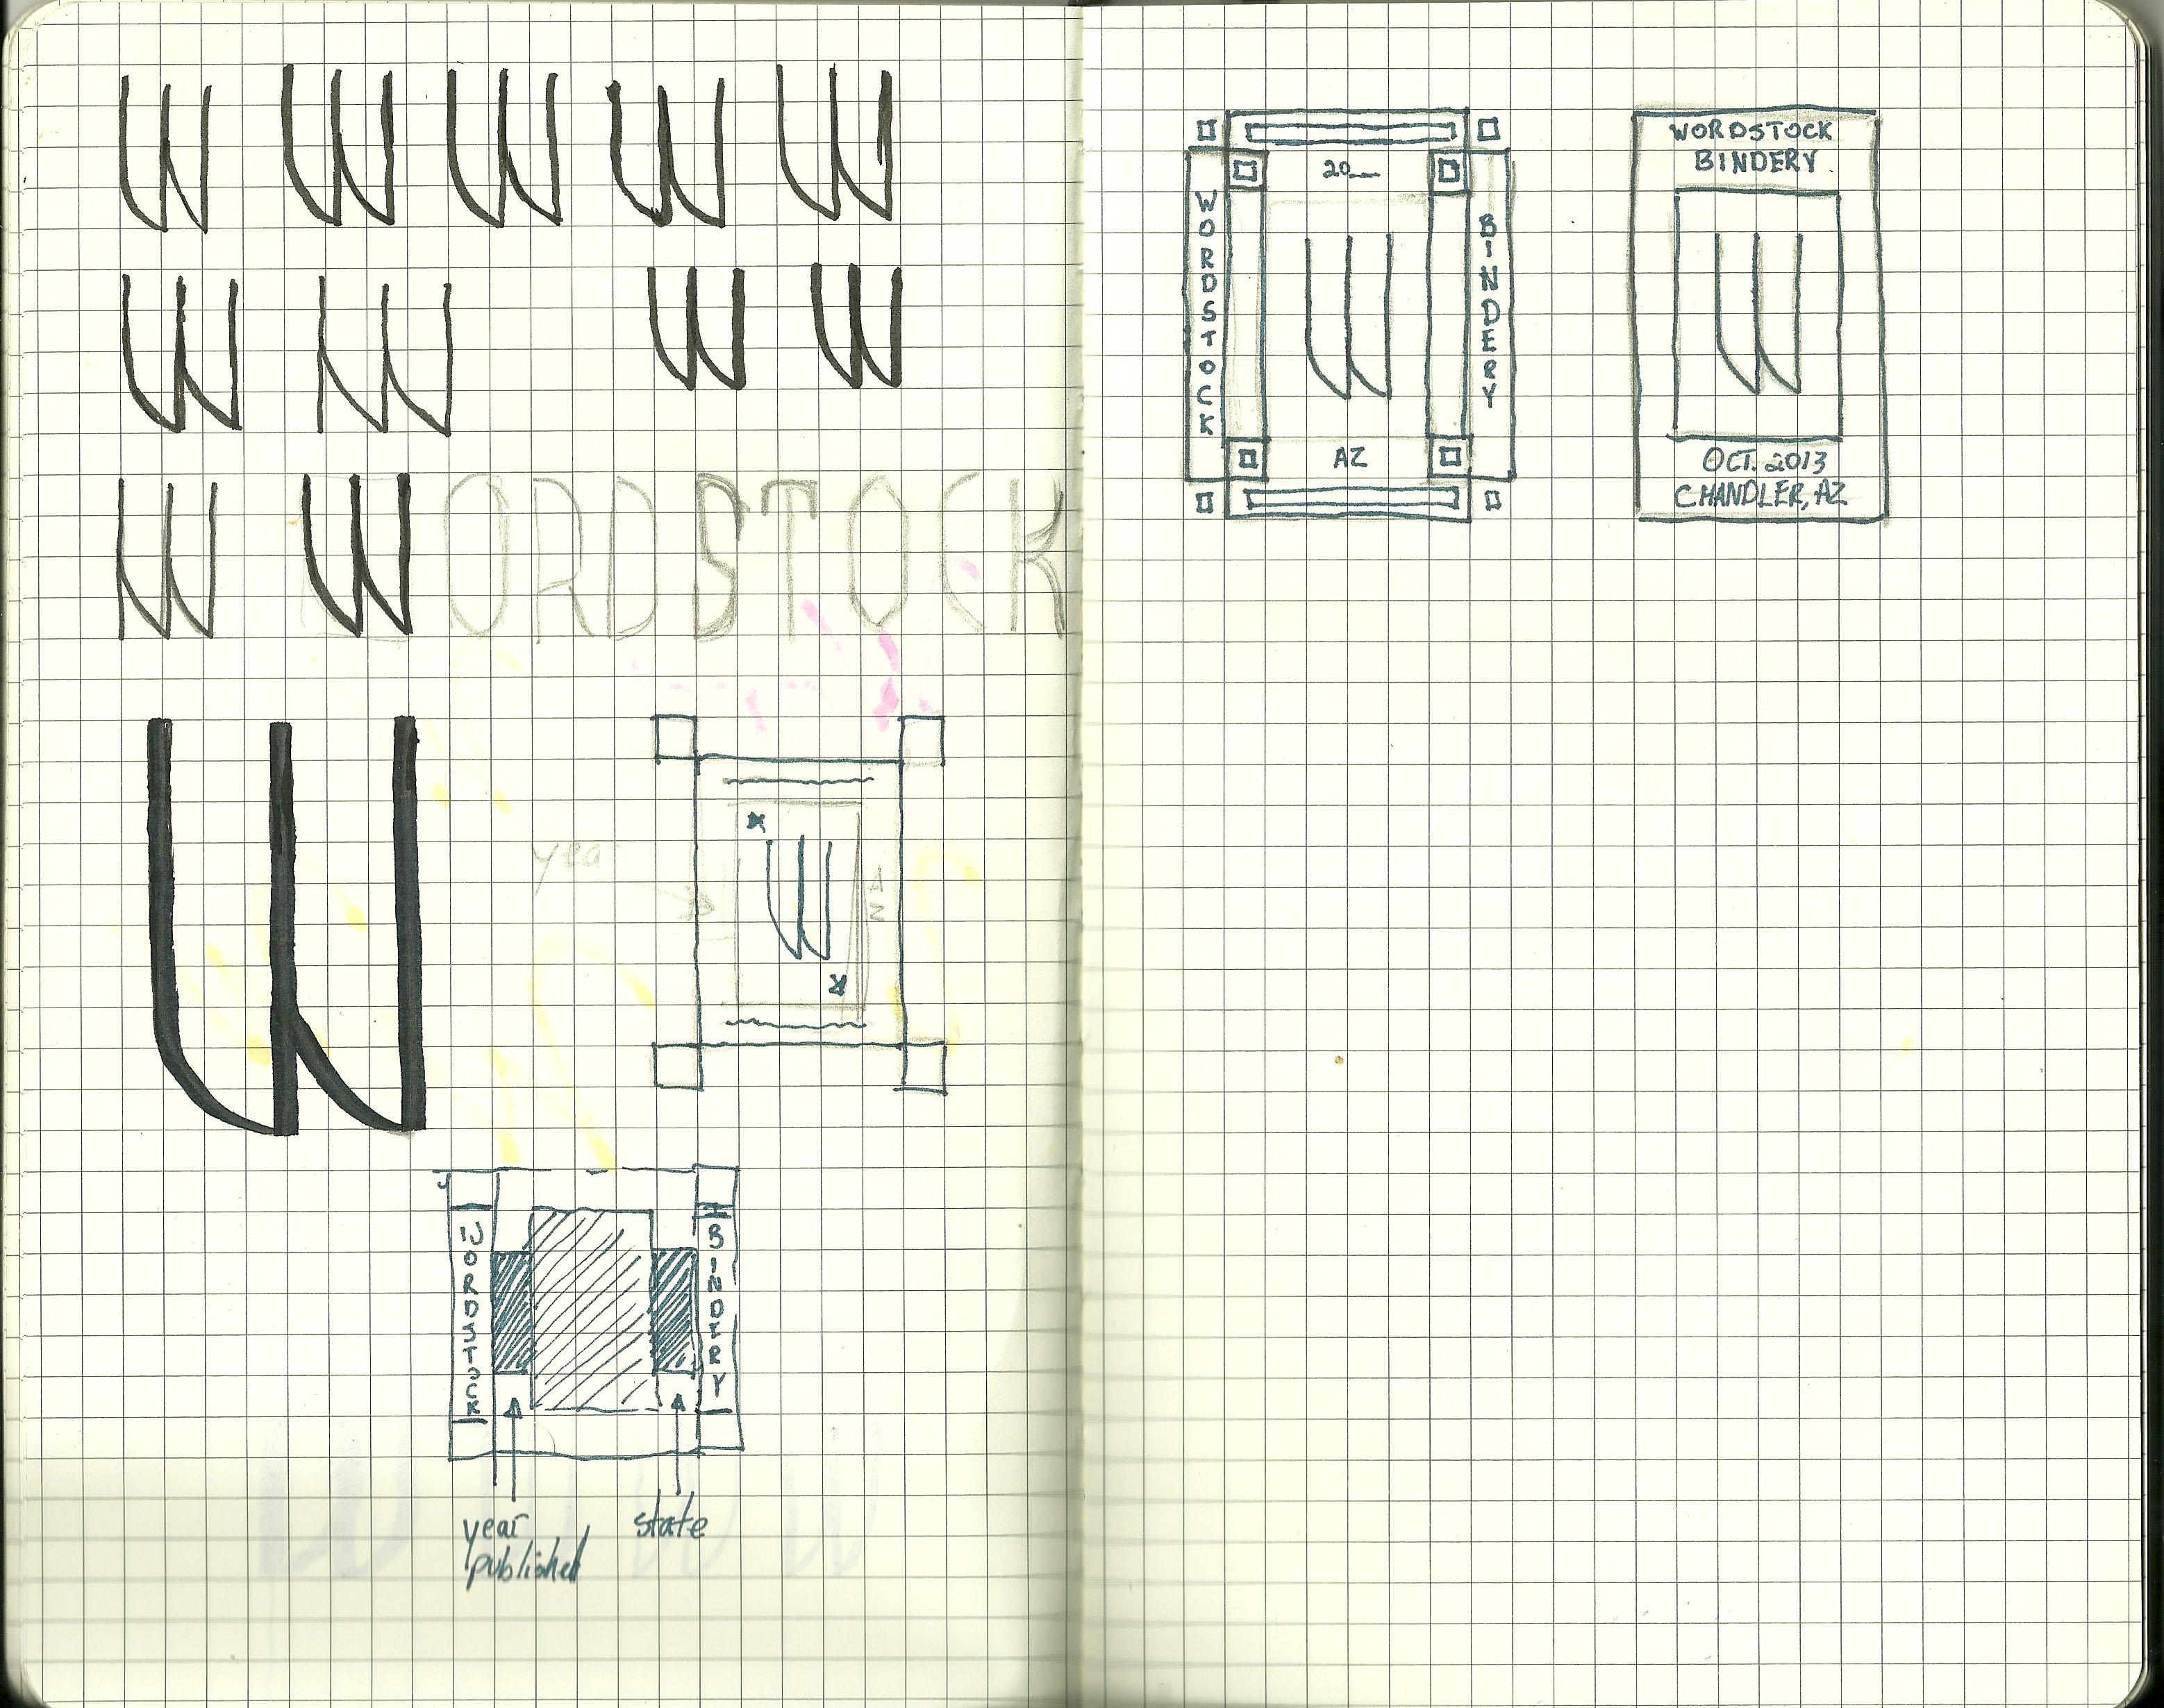 W W W W W
W W W W
W WORDSTOCK
W
year
W
AZ
WORDSTOCK
BINDERY
year
published
state
20__
WORDSTOCK
W
BINDERY
AZ
WORDSTOCK
BINDERY
W
OCT. 2013
CHANDLER, AZ